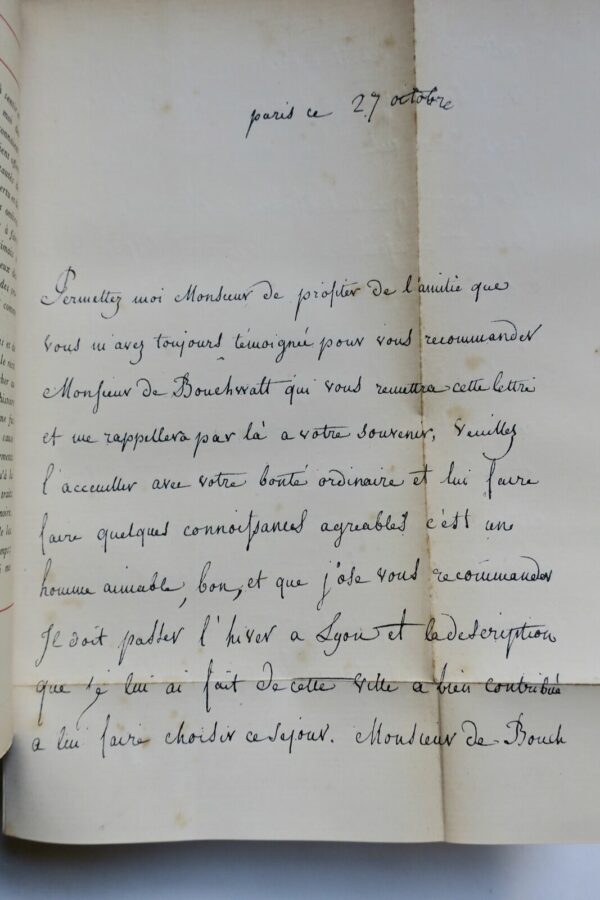 paris ce 27 octobre
Permettez moi Monsieur de profiter de l'amitié que
vous m'avez toujours témoignée pour vous recommander
Monsieur de Bouchwatt qui vous remettra cette lettre
et me rappellera par là a votre souvenir, Veuillez
l'acceuiller avec votre bonté ordinaire et lui faire
faire quelques connoissances agreables c'est un
homme aimable, bon, et que j'ose vous recommander
Il doit passer l'hiver a Lyon et la description
que je lui ai fait de cette ville a bien contribuée
a lui faire choisir ce sejour. Monsieur de Bouch